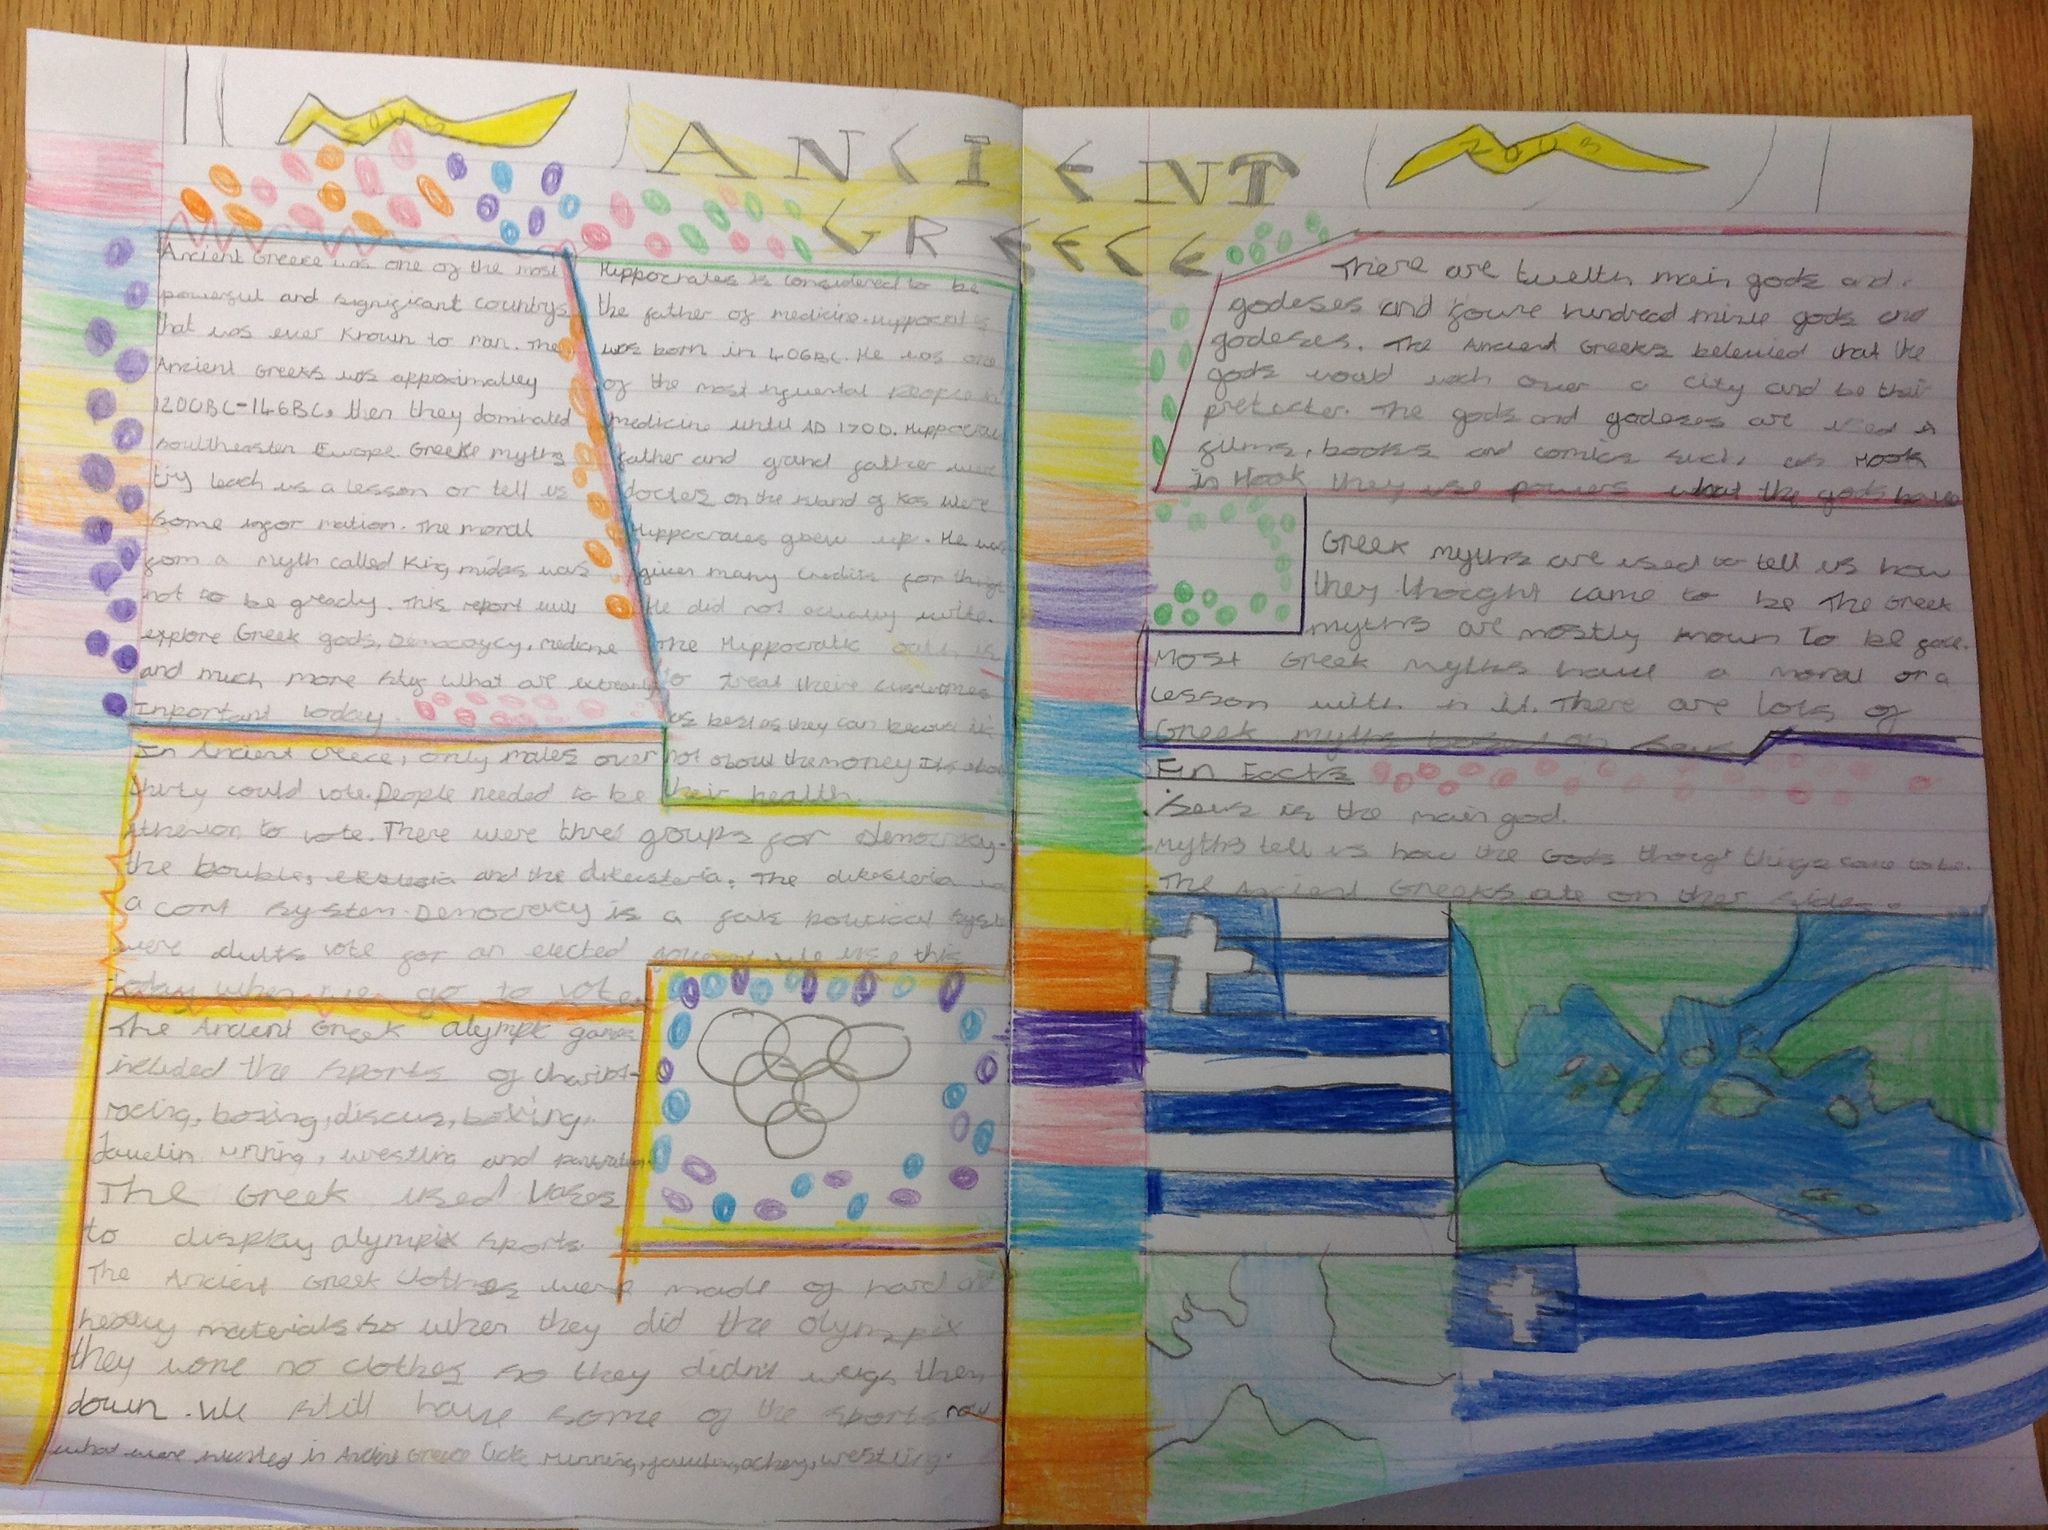 ANCIENT
GREECE
Ancient Greece was one of the most
powerful and significant countrys
that was ever known to man. The
Ancient Greeks was appoximatley
1200BC-146BC, then they dominated
southeastern Europe. Greeke myths
try teach us a lesson or tell us
some infor mation. The moral
from a myth called King midas was
not to be gready. This report will
explore Greek gods, Democracy, medicine
and much more what are
Inportant today.
Hippocrates is considered to be
the father of medicine. Hippocrates
was born in 406BC. He was one
of the most people in
medicine until AD 1700.
father and grand father were
docters on the island of Kos were
Hippocrates grew up. He was
given many credits for things
He did not actually write.
The Hippocratic oath is
to treat theire
as best as they can
not about the money Its about
their health.
In Ancient Greece, only males over
thirty could vote. People needed to be
to vote. There were three groups for democracy.
the and the The
a cort system. Democracy is a fair political
were adults vote for an elected we use this
today when we go to vote.
The Ancient Greek alympic games
included the sports of chariot-
racing, boxing, discus, boxing,
running, and
The Greek used Vases
to display olympix sports.
The Ancient Greek clothes were made of hard and
heavy materials so when they did the olympix
they wore no clothes so they didn't weigh them
down. We still have some of the sports now
what were in Ancient Greece like running,
There are twelth main gods and
godeses and foure hundread minie gods and
godeses. The Ancient Greeks beleuied that the
gods would wach over a city and be their
pretecter. The gods and godeses are used in
films, books and comics such as Hook
in Hook they use powers what the gods have
Greek myths are used to tell us how
they thought came to be The Greek
myths are mostly known to be
Most Greek myths have a moral or a
lesson with in it. There are lots of
Greek myths
Fun Facts
is the main god.
Myths tell us how the things came to be.
The Ancient Greeks ate on ther sides.